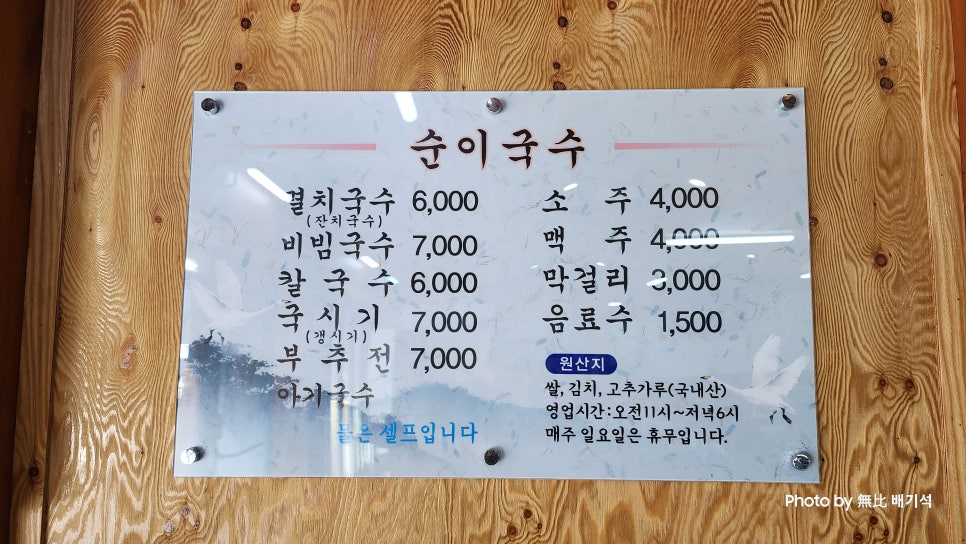 순이국수
멸치국수 6,000
(잔치국수)
비빔국수 7,000
칼국수 6,000
국시기 7,000
(갱시기)
부추전 7,000
아기국수
물은 셀프입니다
소주 4,000
맥주 4,000
막걸리 3,000
음료수 1,500
원산지
쌀, 김치, 고추가루(국내산)
영업시간:오전11시~저녁6시
매주 일요일은 휴무입니다.
Photo by 無比 배기석